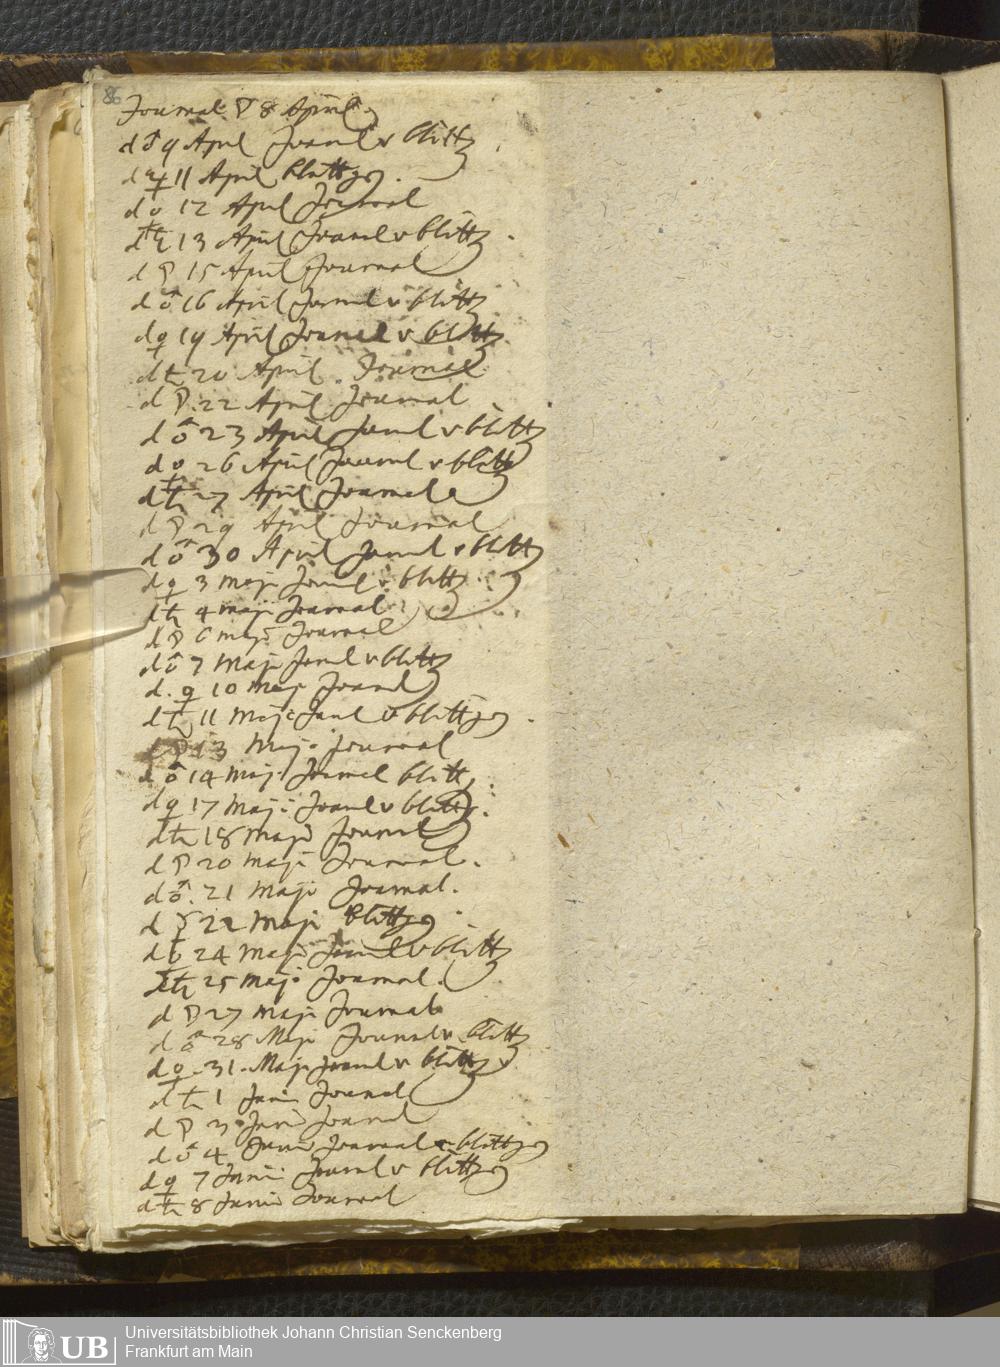 86
Journal ☽ 8 April
d ♂ 9 April Journl v blittg
d ♃ 11 April blittgs.
d ♀ 12 April Journal
d ♄ 13 April Journl v blittg.
d ☽ 15 April Journal
d ♂ 16 April Journl v blittg
d ♀ 19 April Journal v blittg.
d ♄ 20 April Journal
d ☽ 22 April Journal
d ♂ 23 April Journl v blittg
d ♀ 26 April Journl v blittg
d ♄ 27 April Journal
d ☽ 29 April Journal
d ♂ 30 April Journl v blittg
d ♀ 3 Maji Journl v blittg
d ♄ 4 Maji Journal
d ☽ 6 Maji Journal
d ♂ 7 Maji Journl v blittg
d. ♀ 10 Maji Journl
d ♄ 11 Maji Journl v blittgs.
d ☽ 13 Maji Journal
d ♂ 14 Maji Journal blittg
d ♀ 17 Maji Journl v blittg.
d ♄ 18 Maji Journl
d ☽ 20 Maji Journal.
d ♂. 21 Maji Journal.
d ☿ 22 Maji blittgs
d ♀ 24 Maji Journl v blittg
d ♄ 25 Maji Journal.
d ☽ 27 Maji Journal
d ♂ 28 Maji Journal v blittg
d ♀. 31. Maji Journl v blittg
d ♄ 1 Junii Journal
d ☽ 3 Junii Journl
d ♂ 4 Junii Journal v blittgs
d ♀ 7 Junii Journl v blittgs
d ♄ 8 Junii Journal
UB
Universitätsbibliothek Johann Christian Senckenberg
Frankfurt am Main